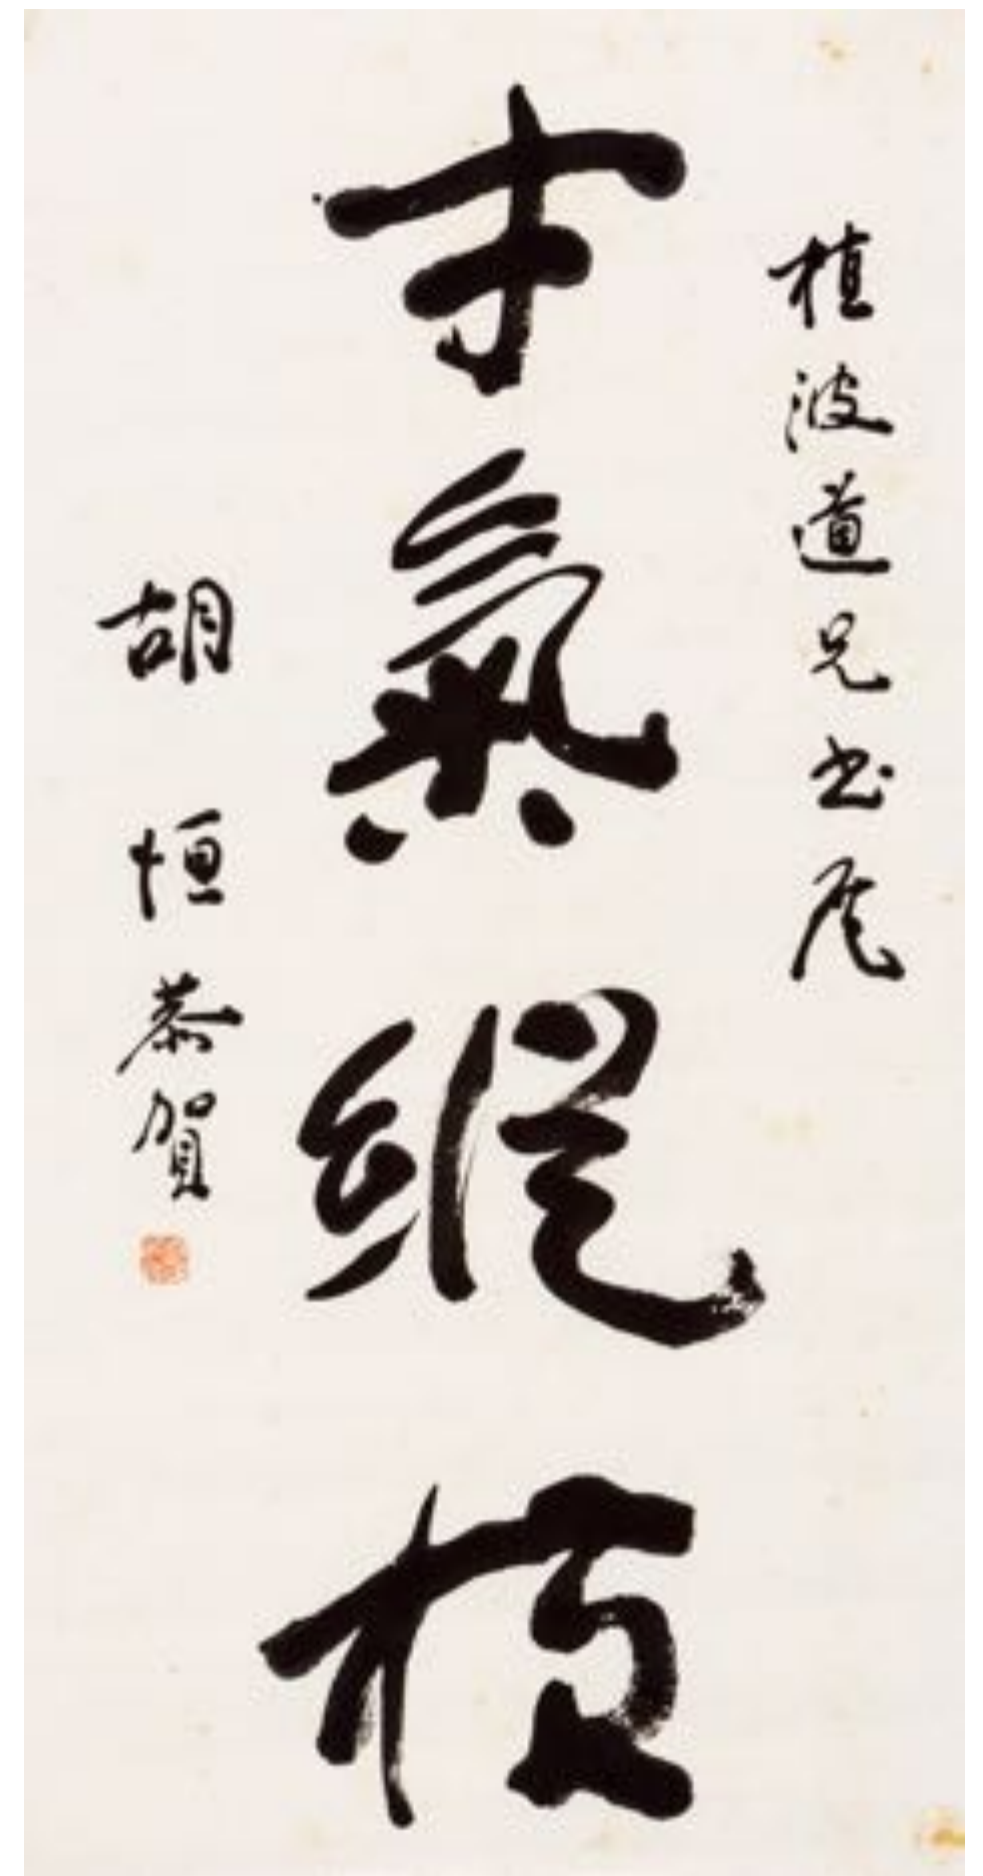 植波道兄书展
才氣縱橫
胡恒恭賀